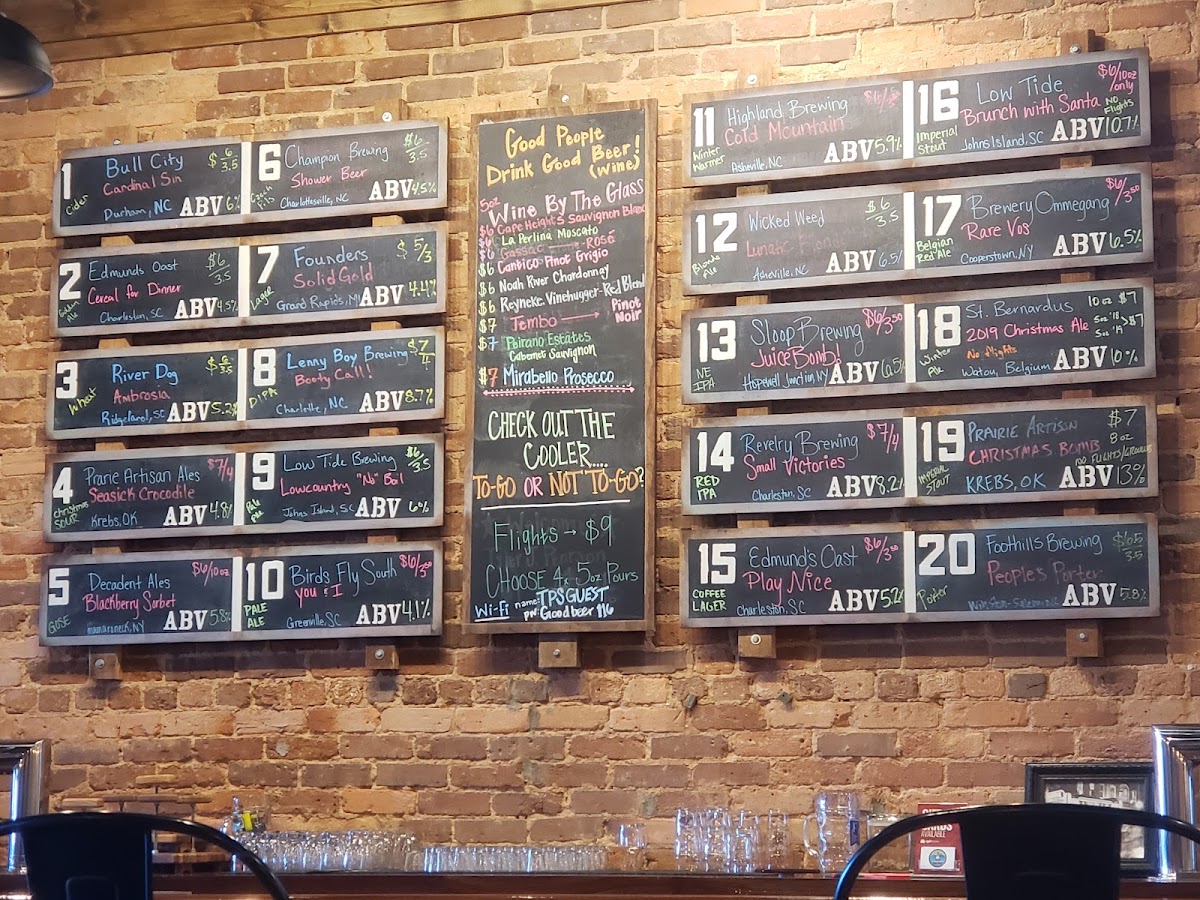 1
Bull City
$ 6/3.5
Cardinal Sin
Cider
Durham, NC
ABV 6%
6
Champion Brewing
$ 6/3.5
Shower Beer
Czech Pils
Charlottesville, NC
ABV 4.5%
2
Edmunds Oast
$6/3.5
Cereal for Dinner
Charleston, SC
ABV 4.5%
7
Founders
$ 5/3
Solid Gold
Lager
Grand Rapids, MI
ABV 4.4%
3
River Dog
$ 6/3.5
Ambrosia
Wheat
Ridgeland, SC
ABV 5.2%
8
Lenny Boy Brewing
$7/4
Booty Call!
DIPA
Charlotte, NC
ABV 8.7%
4
Prarie Artisan Ales
$7/4
Seasick Crocodile
Christmas
Sour
Krebs, OK
ABV 4.8%
9
Low Tide Brewing
$6/3.5
Lowcountry "No" Boil
Pale Ale
Johns Island, SC
ABV 6%
5
Decadent Ales
$6/10oz
Blackberry Sorbet
GOSE
mamaroneck, NY
ABV 5.8%
10
Birds Fly South
$6/3.50
you & I
PALE
ALE
Greenville, SC
ABV 4.1%
Good People
Drink Good Beer!
(wine)
5oz
Wine By The Glass
$6 Cape Heights Sauvignon Blanc
$6 La Perlina Moscato
$6 Gassier Rosé
$6 Cantico Pinot Grigio
$6 Noah River Chardonnay
$6 Reyneke Vinehugger-Red Blend
$7 Tembo → Pinot
Noir
$7 Poirano Estates
Cabernet Sauvignon
$7 Mirabello Prosecco
CHECK OUT THE
COOLER....
TO-GO OR NOT TO-GO?
Flights → $9
CHOOSE 4x 5oz Pours
Wi-fi name: TPSGUEST
pw: Goodbeer 116
11
Highland Brewing
Cold Mountain
Winter
Warmer
Asheville, NC
ABV 5.9%
16
Low Tide
$6/10oz
only
Brunch with Santa
No
Flights
Imperial
Stout
Johns Island, SC
ABV 10.7%
12
Wicked Weed
$6/3.5
Lunatic Blonde
Blonde
Ale
Asheville, NC
ABV 6.5%
17
Brewery Ommegang
$6/3.50
Rare Vos
Belgian
Red Ale
Cooperstown, NY
ABV 6.5%
13
Sloop Brewing
$6/3.50
JuiceBomb!
NE
IPA
Hopewell Junction, NY
ABV 6.5%
18
St. Bernardus
10oz $7
2019 Christmas Ale
5oz '18
5oz '19 >$7
Winter
Ale
No flights
Watou, Belgium
ABV 10%
14
Revelry Brewing
$7/4
Small Victories
RED
IPA
Charleston, SC
ABV 8.2%
19
PRAIRIE ARTISAN
$7
8oz
CHRISTMAS BOMB
NO FLIGHTS/GROWLERS
IMPERIAL
STOUT
KREBS, OK
ABV 13%
15
Edmund's Oast
$6/3.50
Play Nice
COFFEE
LAGER
Charleston, SC
ABV 5.2%
20
Foothills Brewing
People's Porter
Porter
Winston-Salem, NC
ABV 5.8%